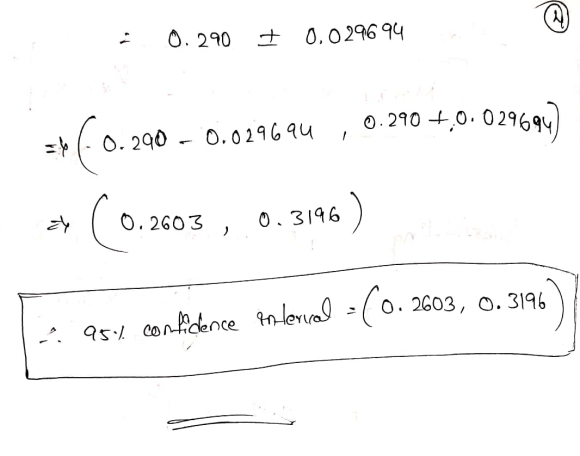 ④
= 0.290 ± 0.029694
=> (0.290 - 0.029694 , 0.290 + 0.029694)
=> (0.2603 , 0.3196)
∴ 95% confidence interval = (0.2603, 0.3196)